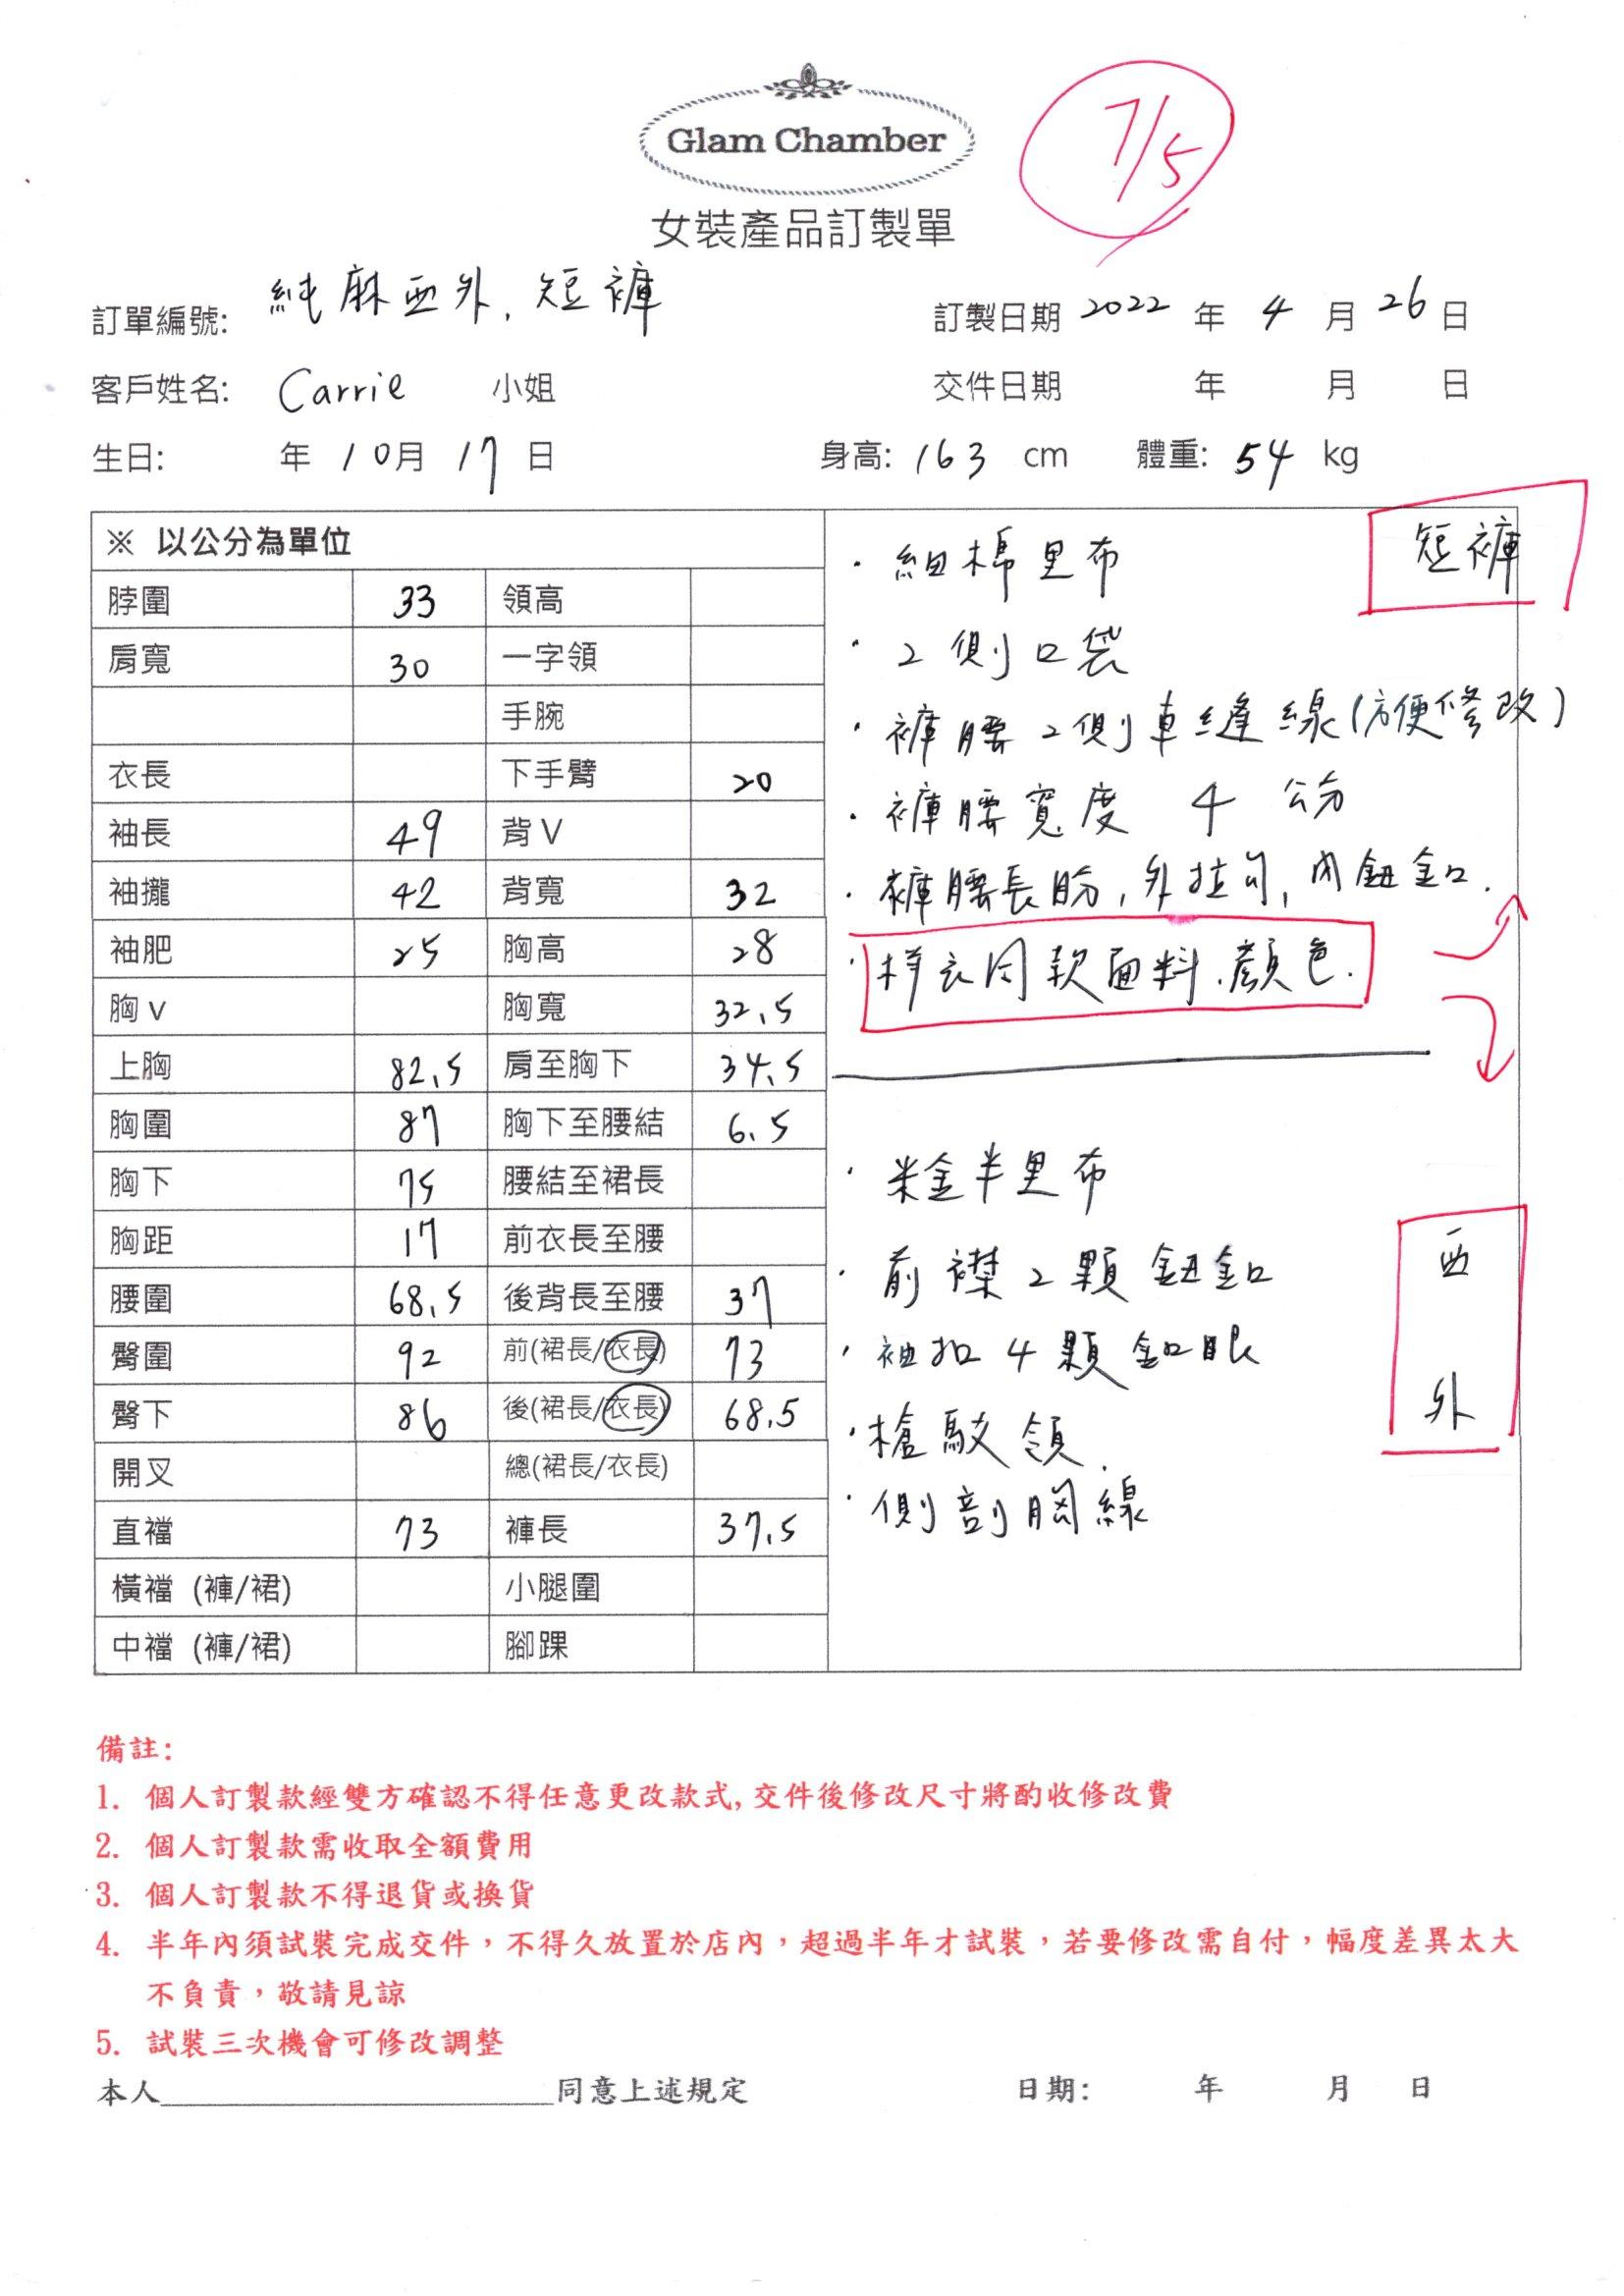 Glam Chamber
7/5
女裝產品訂製單
訂單編號: 純麻西外. 短褲
訂製日期 2022 年 4 月 26 日
客戶姓名: Carrie 小姐
交件日期 年 月 日
生日: 年 10月 17 日 身高: 163 cm 體重: 54 kg
※ 以公分為單位
脖圍 33 領高
肩寬 30 一字領
手腕
衣長 下手臂 20
袖長 49 背V
袖攏 42 背寬 32
袖肥 25 胸高 28
胸v 胸寬 32.5
上胸 82.5 肩至胸下 34.5
胸圍 87 胸下至腰結 6.5
胸下 75 腰結至裙長
胸距 17 前衣長至腰
腰圍 68.5 後背長至腰 37
臀圍 92 前(裙長/衣長) 73
臀下 86 後(裙長/衣長) 68.5
開叉 總(裙長/衣長)
直襠 73 褲長 37.5
橫襠 (褲/裙) 小腿圍
中襠 (褲/裙) 腳踝
短褲
· 細棉里布
· 2 側口袋
· 褲腰2側車縫線(方便修改)
· 褲腰寬度 4 公分
· 褲腰長肦, 外拉勾, 內鈕釦.
· 样衣同款面料.顏色.
西外
· 米金半里布
· 前襟2顆鈕釦
· 袖扣4顆釦眼
· 槍駁領.
· 側剖胸線
備註:
1. 個人訂製款經雙方確認不得任意更改款式, 交件後修改尺寸將酌收修改費
2. 個人訂製款需收取全額費用
3. 個人訂製款不得退貨或換貨
4. 半年內須試裝完成交件，不得久放置於店內，超過半年才試裝，若要修改需自付，幅度差異太大
不負責，敬請見諒
5. 試裝三次機會可修改調整
本人____________________同意上述規定 日期: 年 月 日